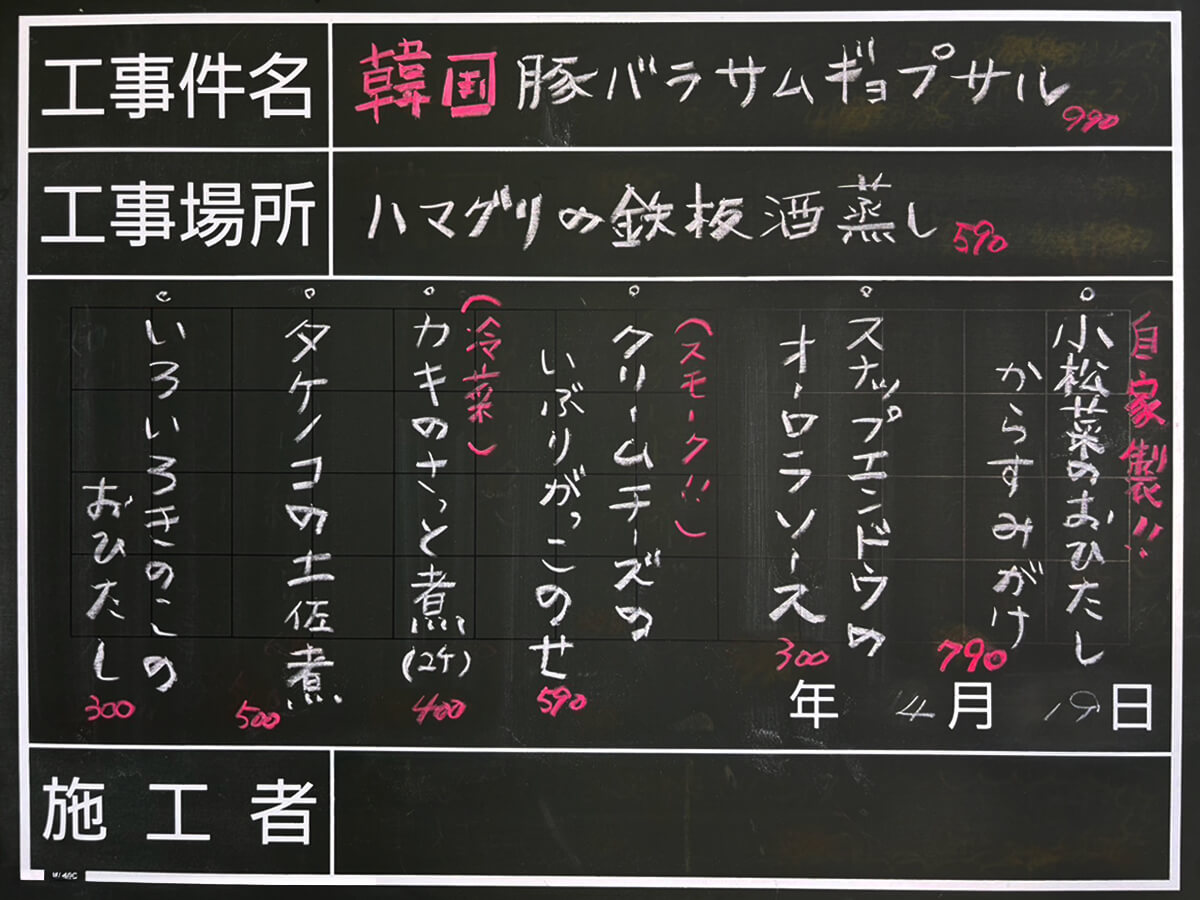 工事件名
韓国豚バラサムギョプサル
990
工事場所
ハマグリの鉄板酒蒸し
590
自家製!!
小松菜のおひたし
からすみがけ
790
スナップエンドウの
オーロラソース
300
(スモーク!!)
クリームチーズの
いぶりがっこのせ
590
(冷菜)
カキのさっと煮(2ケ)
400
タケノコの土佐煮
500
いろいろきのこの
おひたし
300
年 4月 19日
施工者